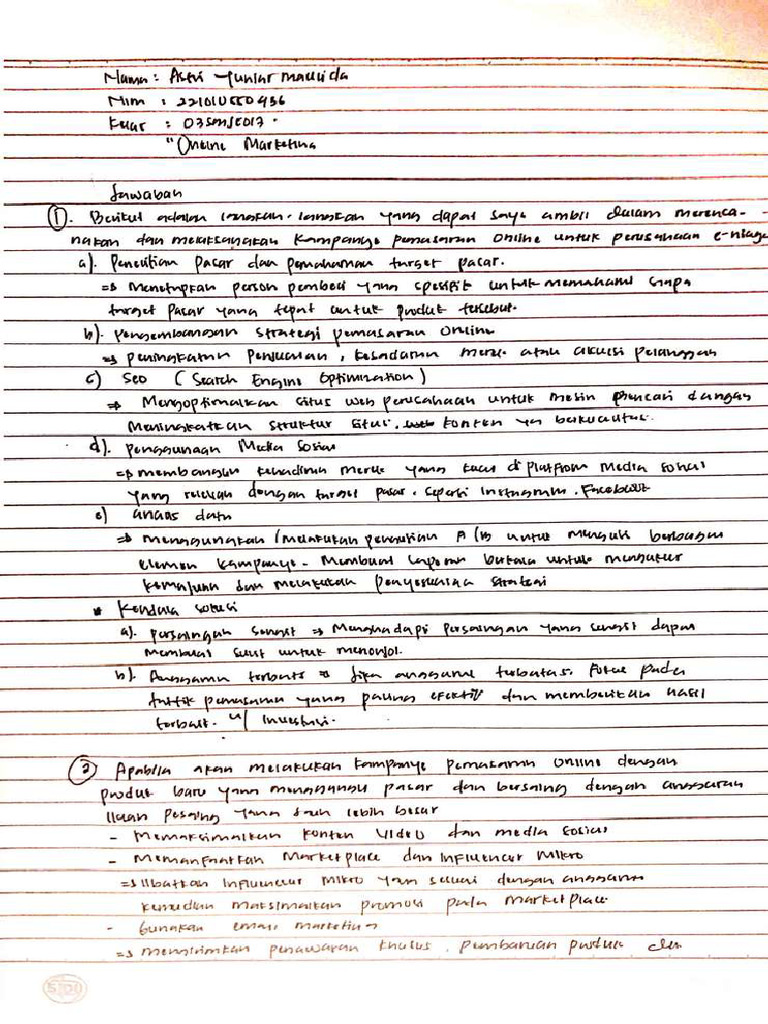 Nama : Astri Yuniar Maulida
Nim : 221010550436
Kelas : 03SMJE013 .
"Online Marketing
Jawaban
① . Berikut adalah langkah-langkah yang dapat saya ambil dalam merenca-
nakan dan melaksanakan kampanye pemasaran online untuk perusahaan e-niaga
a). Penelitian pasar dan pemahaman target pasar.
=> Menetapkan person pembeli yang spesifik untuk memahami siapa
target pasar yang tepat untuk produk tersebut.
b). Pengembangan strategi pemasaran online
=> peningkatan penjualan, kesadaran merek atau akuisi pelanggan
c) SEO (Search Engine Optimization)
=> Mengoptimalkan situs web perusahaan untuk mesin pencari dengan
Meningkatkan struktur situs, konten yg berkualitas.
d). Penggunaan Media Sosial
=> membangun kehadiran merek yang kuat di platfrom media sosial
yang relevan dengan target pasar. Seperti Instagram, Facebook
e) analis data
=> menggunakan / melakukan pengujian A/B untuk menguji berbagai
elemen kampanye - Membuat laporan berkala untuk mengukur
kemajuan dan melakukan penyesuaian strategi
• Kendala solusi
a). persaingan sengit => Menghadapi persaingan yang sengit dapat
membuat sulit untuk menonjol.
b). Anggaran terbatas => Jika anggaran terbatas. Fokus pada
taktik pemasaran yang paling efektif dan memberikan hasil
terbaik - u/ investasi.
② Apabila akan melakukan kampanye pemasaran online dengan
produk baru yang mengganggu pasar dan bersaing dengan anggaran
iklan pesaing yang jauh lebih besar
- Memaksimalkan konten video dan media sosial
- Memanfaatkan Marketplace dan Influencer Mikro
=> libatkan influencer mikro yang sesuai dengan anggaran
kemudian maksimalkan promosi pada marketplace
- Gunakan email marketing
=> mengirimkan penawaran khusus, pembaruan produk dan
SIDU